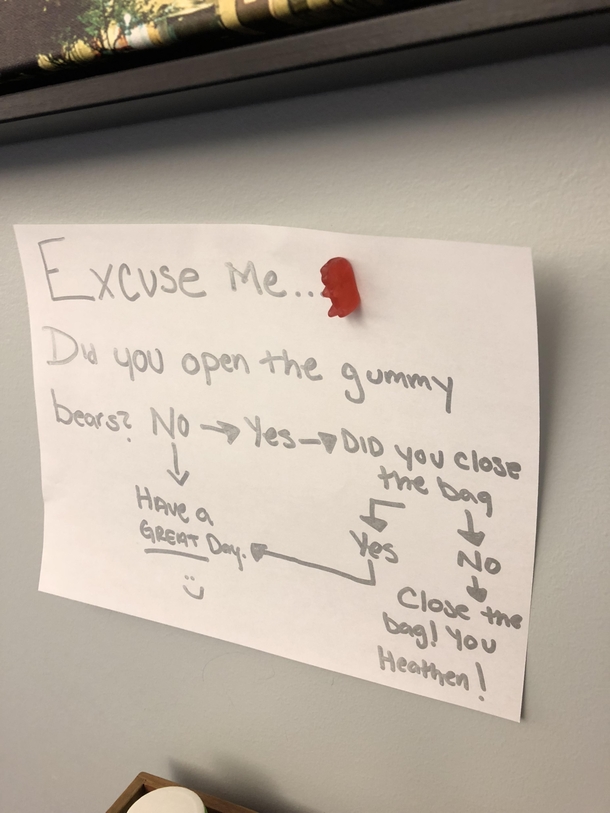 Excuse Me...
Did you open the gummy
bears? No → Yes → DID you close
the bag
Have a
GREAT Day.
Yes
No
Close the
bag! You
Heathen!